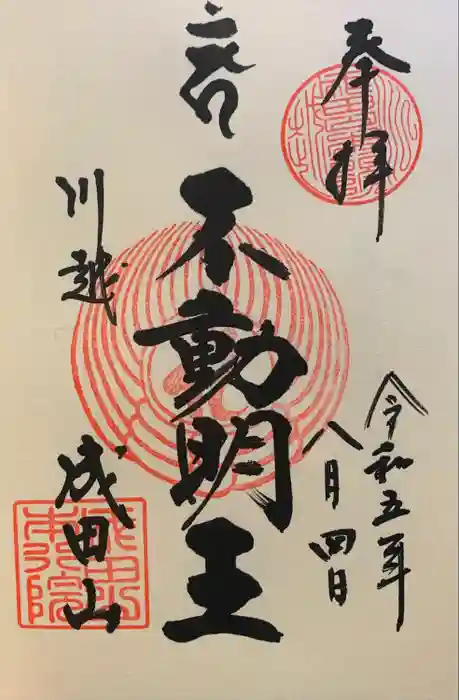 奉拝
令和五年
八月四日
不動明王
川越
成田山